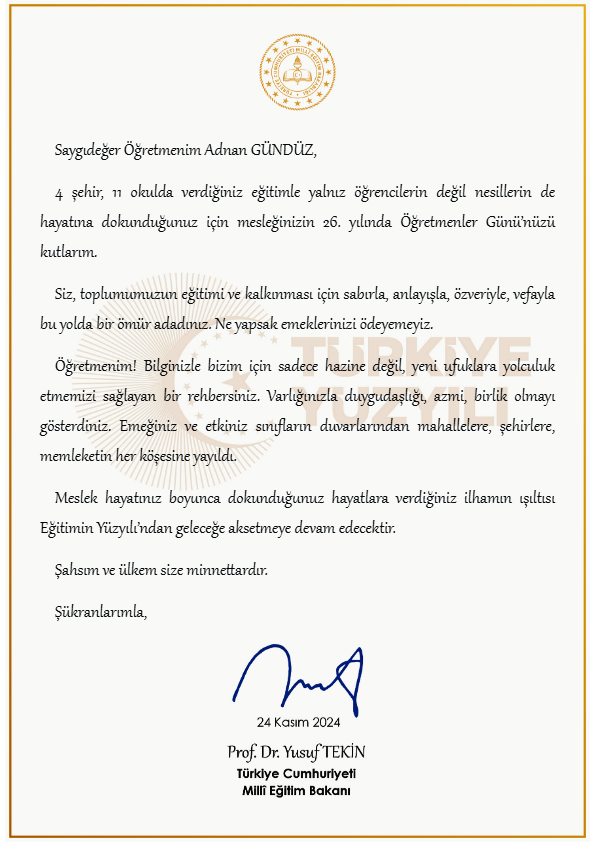 TÜRKİYE CUMHURİYETİ MİLLÎ EĞİTİM BAKANLIĞI
Saygıdeğer Öğretmenim Adnan GÜNDÜZ,
4 şehir, 11 okulda verdiğiniz eğitimle yalnız öğrencilerin değil nesillerin de
hayatına dokunduğunuz için mesleğinizin 26. yılında Öğretmenler Günü'nüzü
kutlarım.
Siz, toplumumuzun eğitimi ve kalkınması için sabırla, anlayışla, özveriyle, vefayla
bu yolda bir ömür adadınız. Ne yapsak emeklerinizi ödeyemeyiz.
TÜRKİYE
YÜZYILI
Öğretmenim! Bilginizle bizim için sadece hazine değil, yeni ufuklara yolculuk
etmemizi sağlayan bir rehbersiniz. Varlığınızla duygudaşlığı, azmi, birlik olmayı
gösterdiniz. Emeğiniz ve etkiniz sınıfların duvarlarından mahallelere, şehirlere,
memleketin her köşesine yayıldı.
Meslek hayatınız boyunca dokunduğunuz hayatlara verdiğiniz ilhamın ışıltısı
Eğitimin Yüzyılı'ndan geleceğe aksetmeye devam edecektir.
Şahsım ve ülkem size minnettardır.
Şükranlarımla,
24 Kasım 2024
Prof. Dr. Yusuf TEKİN
Türkiye Cumhuriyeti
Millî Eğitim Bakanı